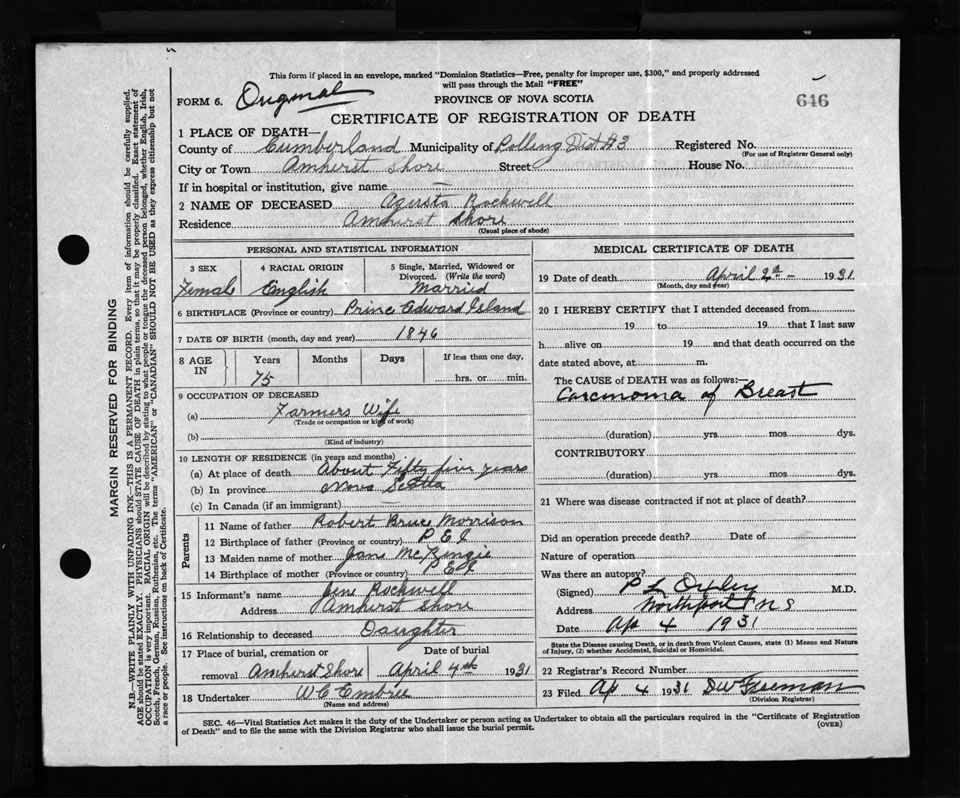 This form if placed in an envelope, marked "Dominion Statistics—Free, penalty for improper use, $300," and properly addressed
will pass through the Mail "FREE"
FORM 6. Original PROVINCE OF NOVA SCOTIA 646
CERTIFICATE OF REGISTRATION OF DEATH
1 PLACE OF DEATH—
County of Cumberland Municipality of Polling Dist #3 Registered No.
(For use of Registrar General only)
City or Town Amherst Shore Street House No.
If in hospital or institution, give name —
2 NAME OF DECEASED Agusta Rockwell
Residence Amherst Shore
(Usual place of abode)
PERSONAL AND STATISTICAL INFORMATION
3 SEX 4 RACIAL ORIGIN 5 Single, Married, Widowed or
Divorced. (Write the word)
Female English Married
6 BIRTHPLACE (Province or country) Prince Edward Island
7 DATE OF BIRTH (month, day and year) 1846
8 AGE IN Years Months Days If less than one day,
75 hrs. or min.
9 OCCUPATION OF DECEASED
(a) Farmers Wife
(Trade or occupation or kind of work)
(b)
(Kind of industry)
10 LENGTH OF RESIDENCE (in years and months)
(a) At place of death About Fifty five years
(b) In province Nova Scotia
(c) In Canada (if an immigrant)
Parents
11 Name of father Robert Bruce Morrison
12 Birthplace of father (Province or country) P E I
13 Maiden name of mother Jane McKingie
14 Birthplace of mother (Province or country) P E I
15 Informant's name Jene Rockwell
Address Amherst Shore
16 Relationship to deceased Daughter
17 Place of burial, cremation or Date of burial
removal Amherst Shore April 4th 1931
18 Undertaker W C Embree
(Name and address)
MEDICAL CERTIFICATE OF DEATH
19 Date of death April 2d — 1931
(Month, day and year)
20 I HEREBY CERTIFY that I attended deceased from
19 to 19 that I last saw
h alive on 19 and that death occurred on the
date stated above, at m.
The CAUSE OF DEATH was as follows:—
Carcinoma of Breast
(duration) yrs. mos dys.
CONTRIBUTORY
(duration) yrs. mos. dys.
21 Where was disease contracted if not at place of death?
Did an operation precede death? Date of
Nature of operation
Was there an autopsy?
(Signed) P L Oxley M.D.
Address Northport N S
Date Ap 4 1931
State the Disease causing Death, or in death from Violent Causes, state (1) Means and Nature
of Injury, (2) whether Accidental, Suicidal or Homicidal.
22 Registrar's Record Number
23 Filed Ap 4 1931 D W Freeman
(Division Registrar)
SEC. 46—Vital Statistics Act makes it the duty of the Undertaker or person acting as Undertaker to obtain all the particulars required in the "Certificate of Registration
of Death" and to file the same with the Division Registrar who shall issue the burial permit. (OVER)
MARGIN RESERVED FOR BINDING
N.B.—WRITE PLAINLY WITH UNFADING INK—THIS IS A PERMANENT RECORD. Every item of information should be carefully supplied.
AGE should be stated EXACTLY. PHYSICIANS should STATE CAUSE OF DEATH in plain terms, so that it may be properly classified. Exact statement of
OCCUPATION is very important. RACIAL ORIGIN will be described by stating to what people or tongue the deceased person belonged, whether English, Irish,
Scotch, French, German, Russian, Ruthenian, etc. The terms "AMERICAN" or "CANADIAN" SHOULD NOT BE USED as they express citizenship but not
a race or people. See instructions on back of Certificate.